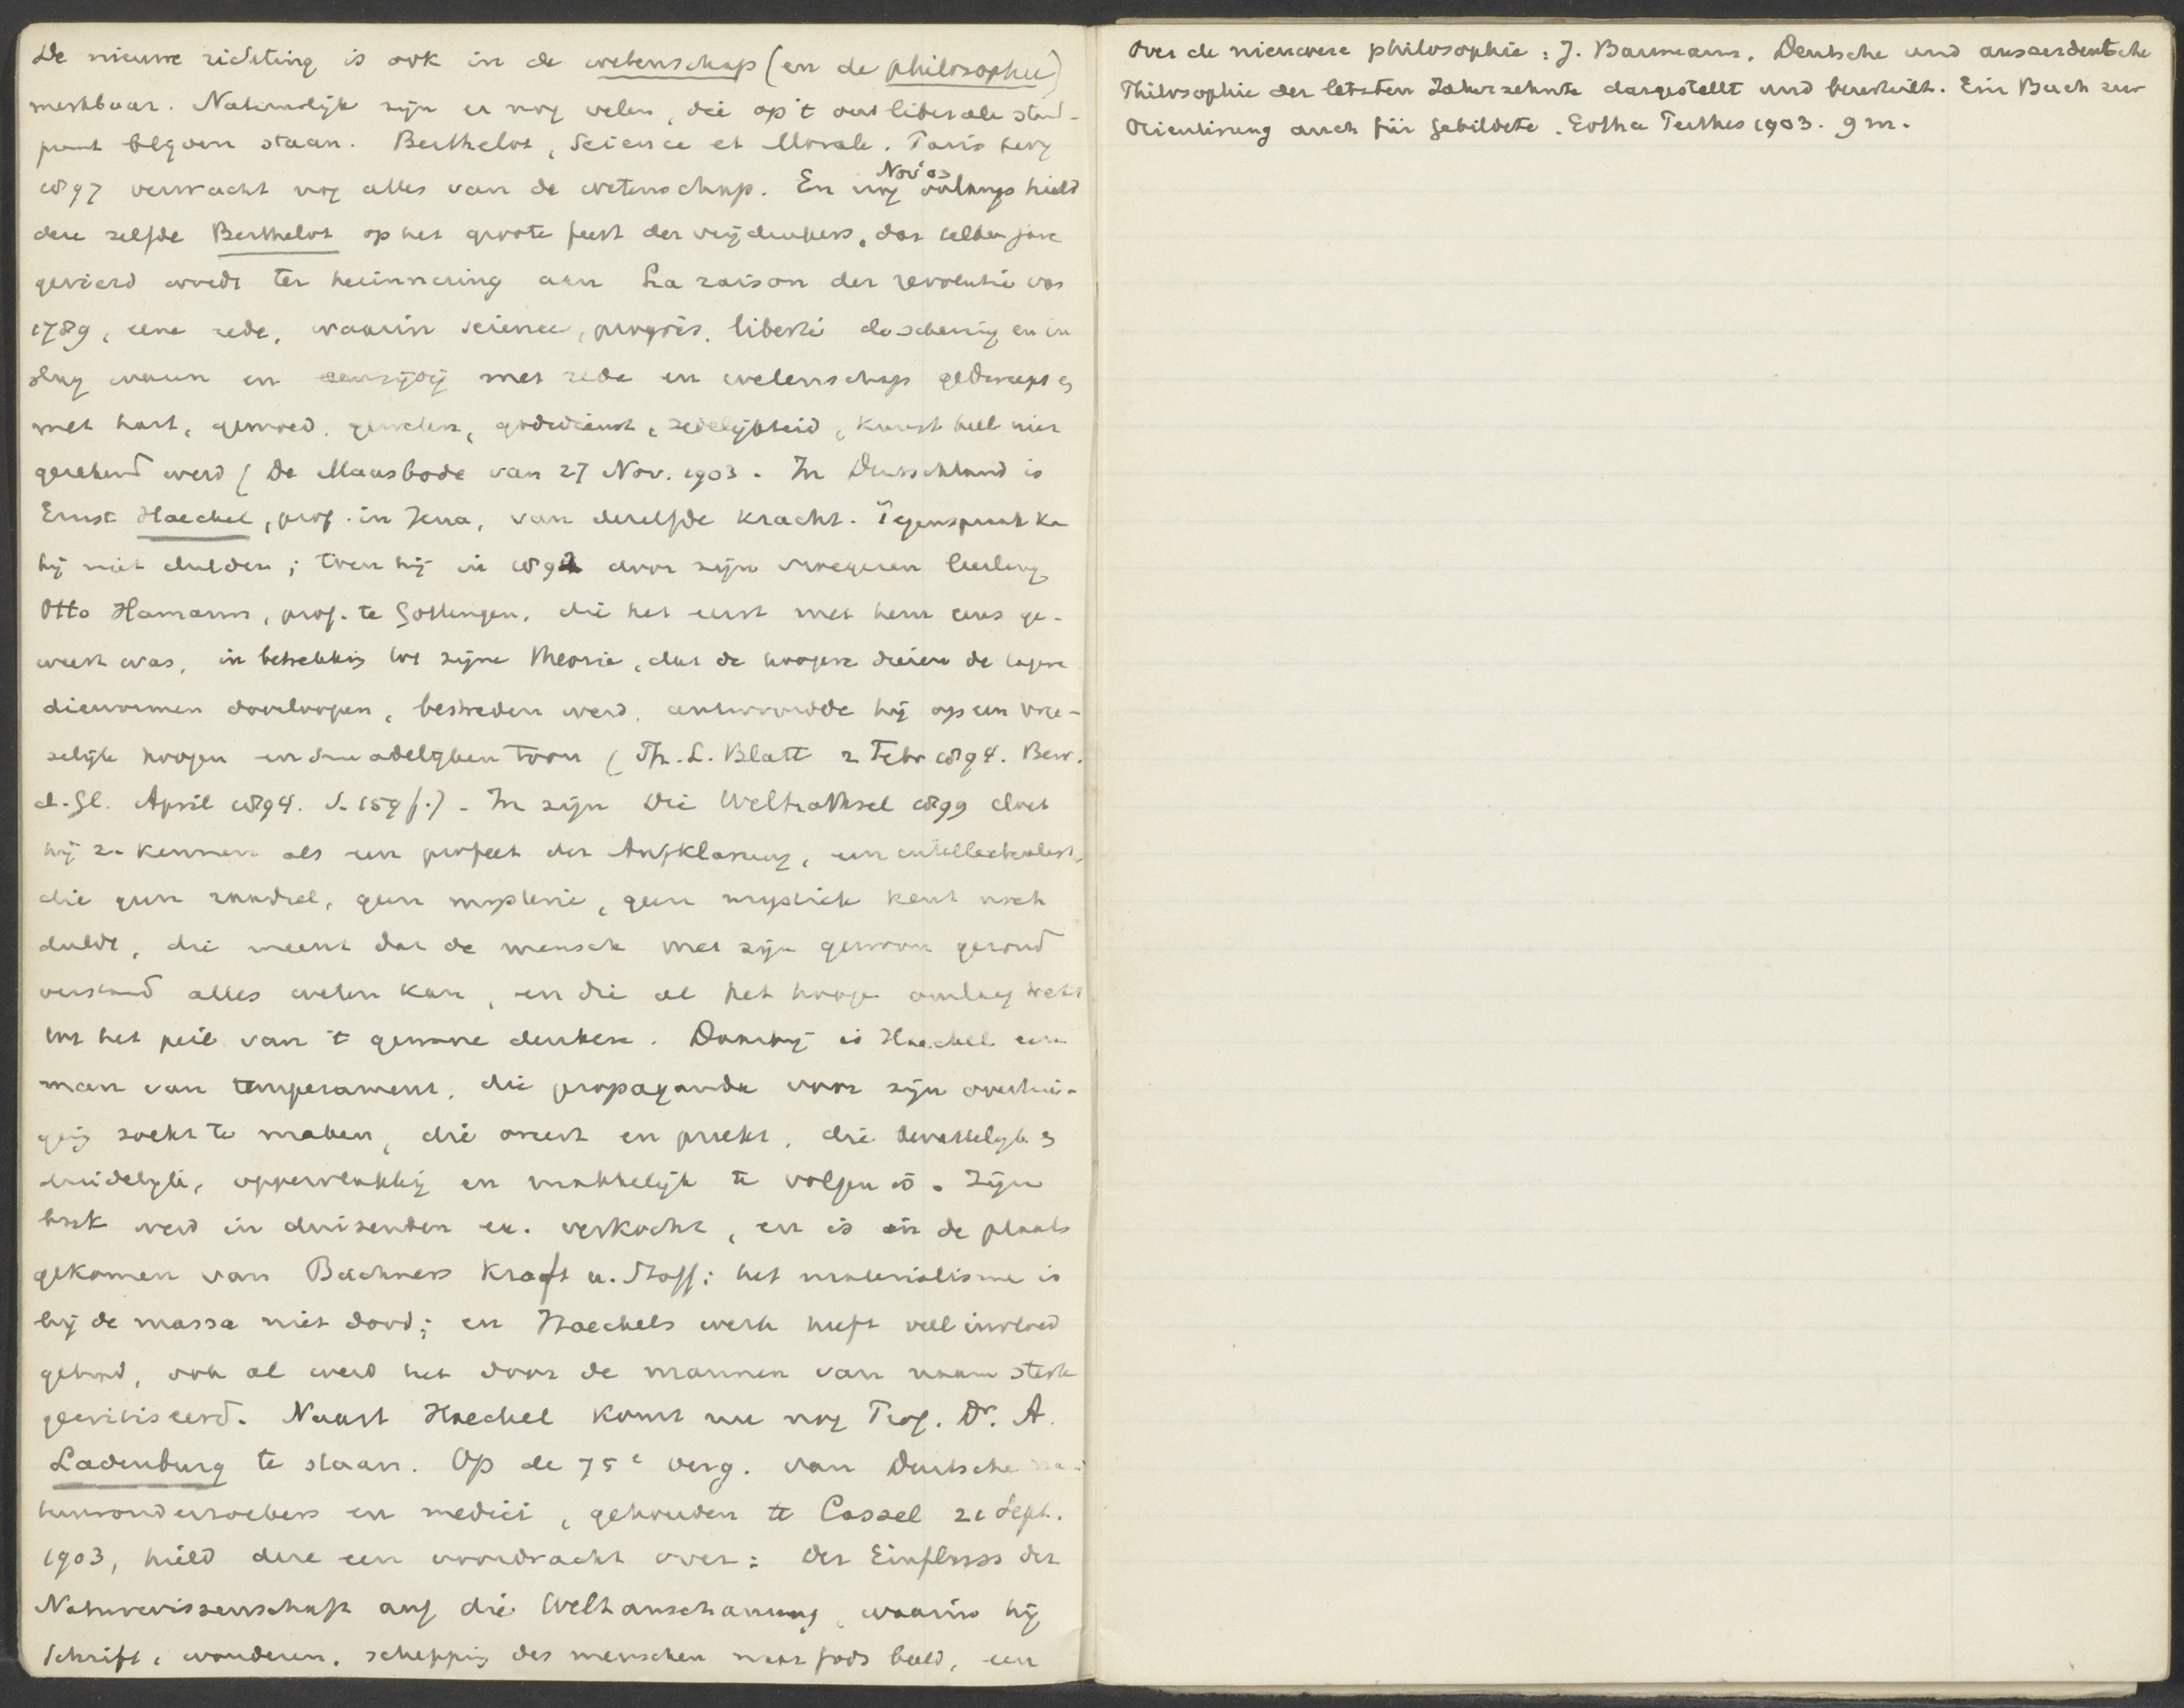 De nieuwe richting is ook in de wetenschap (en de philosophie)
merkbaar. Natuurlijk zijn er nog velen, die op 't oud liberale stand-
punt blijven staan. Berthelot, Science et Morale. Paris Levy
1897 verwacht nog alles van de wetenschap. En nog Nov '03 onlangs hield
deze zelfde Berthelot op het groote feest der vrijdenkers, dat
gevierd wordt ter herinnering aan La raison der revolutie van
1789, eene rede, waarin science, progrès, liberté de schering en in
slag waren en eenzijdig met rede en wetenschap gedweept en
met hart, gemoed, geweten, godsdienst, zedelijkheid, kunst heel niet
gerekend werd (De Maasbode van 27 Nov. 1903. In Duitschland is
Ernst Haeckel, prof. in Jena, van dezelfde kracht. Tegenspraak kan
hij niet dulden; toen hij in 1892 door zijn vroegeren leerling
Otto Hamann, prof. te Göttingen, die het eerst met hem eens ge-
weest was, in betrekking tot zijne theorie, dat de hoogere dieren de lagere
diervormen doorloopen, bestreden werd, antwoordde hij op een vree-
selijk hoogen en onadelijken toon (Th. L. Blatt 2 Febr 1894. Bew.
d. Gl. April 1894. S. 159 f.) - In zijn Die Welträthsel 1899 doet
hij zn kennen als een profeet der Aufklärung, een intellectualist,
die geen raadsel, geen mysterie, geen mystiek kent noch
duldt, die meent dat de mensch met zijn gewoon gezond
verstand alles weten kan, en die al het hooge omlaag trekt
tot het peil van 't gewone denken. Daarbij is Haeckel een
man van temperament, die propaganda voor zijn overtui-
ging zoekt te maken, die oreert en preekt, die bevattelijk en
duidelijk, oppervlakkig en makkelijk te volgen is. Zijn
boek werd in duizenden ex. verkocht, en is in de plaats
gekomen van Büchners Kraft u. Stoff; het materialisme is
bij de massa niet dood; en Haeckels werk heeft veel invloed
gehad, ook al werd het door de mannen van naam sterk
gecritiseerd. Naast Haeckel komt nu nog Prof. Dr. A.
Ladenburg te staan. Op de 75e verg. van Duitsche na-
tuuronderzoekers en medici, gehouden te Cassel 21 Sept.
1903, hield deze een voordracht over: Der Einfluss der
Naturwissenschaft auf die Weltanschauung, waarin hij
Schrift, wonderen, schepping des menschen naar Gods beeld, een
Over de nieuwere philosophie: J. Baumann. Deutsche und ausserdeutsche
Philosophie der letzten Jahrzehnte dargestellt und beurteilt. Ein Buch zur
Orientirung auch für Gebildete. Gotha Perthes 1903. 9 M.